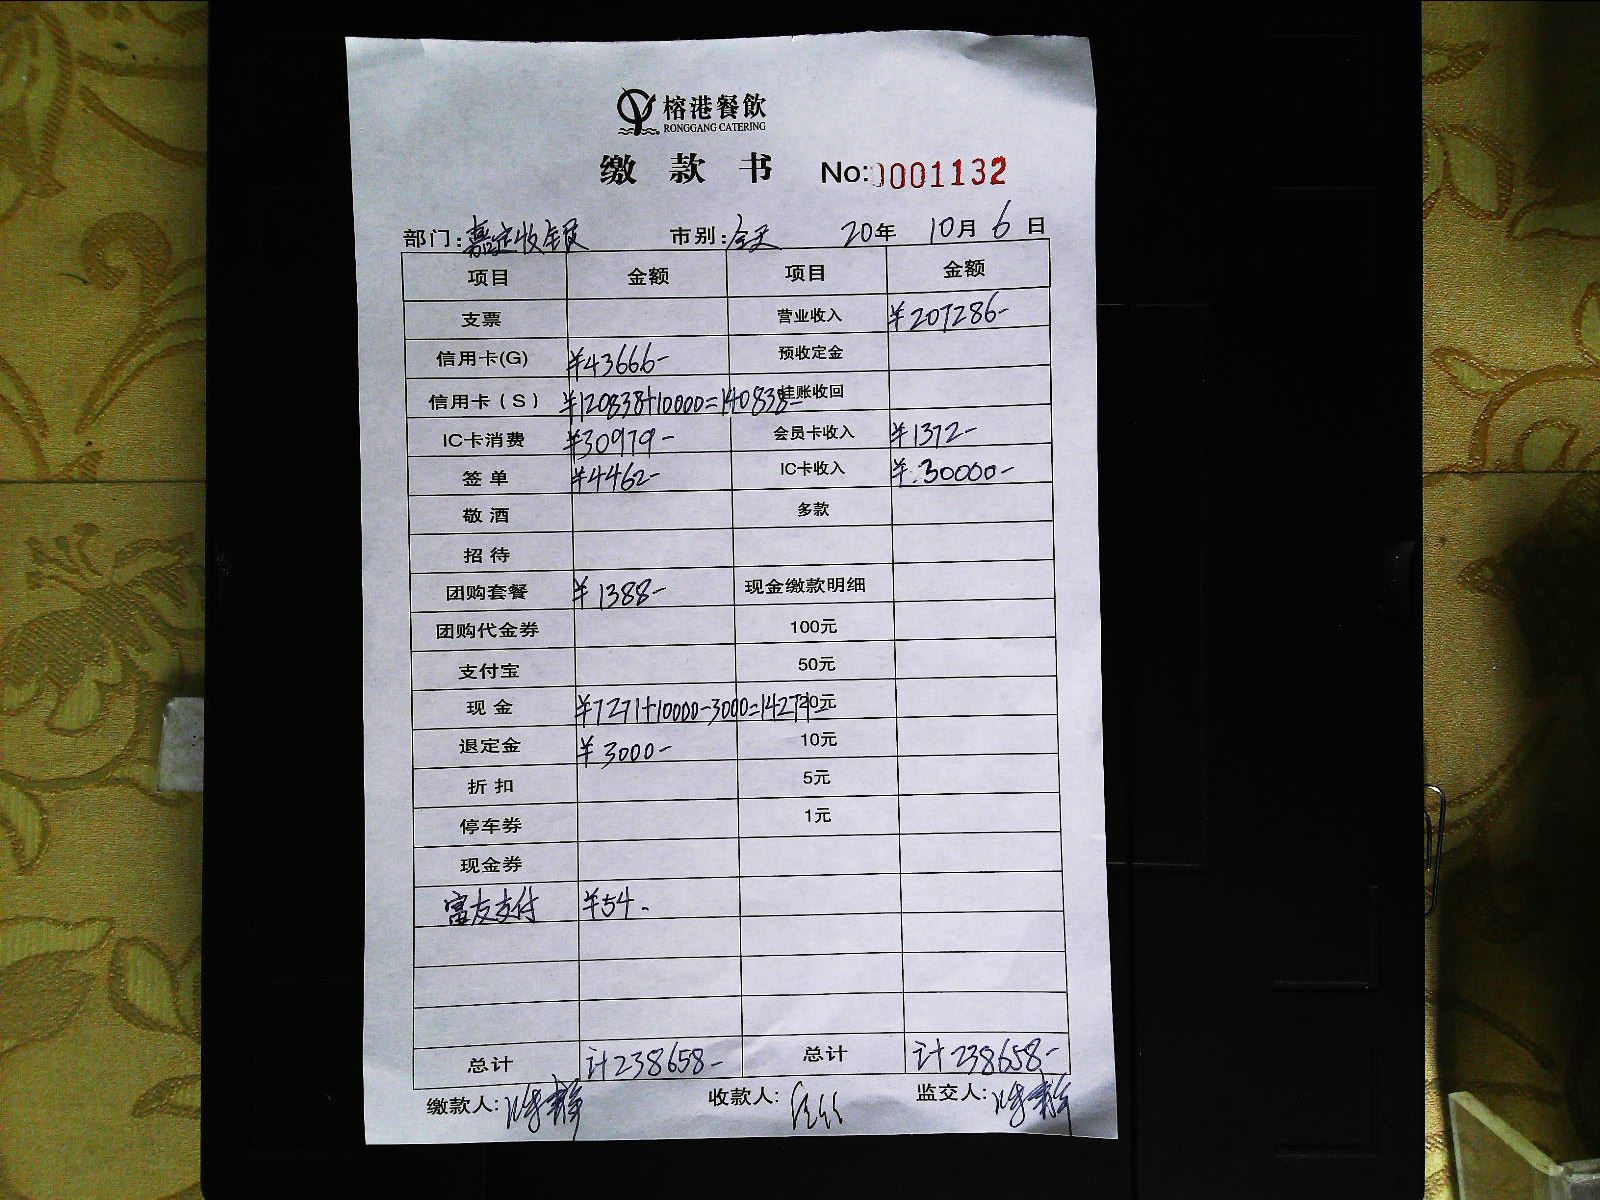 榕港餐飲
RONGGANG CATERING
缴款书 No:0001132
部门:嘉定收银 市别:全天 20年 10月 6日
项目 金额 项目 金额
支票 营业收入 ¥207286-
信用卡(G) ¥43666- 预收定金
信用卡(S) ¥120838+10000=140838- 挂账收回
IC卡消费 ¥30979- 会员卡收入 ¥1372-
签单 ¥4462- IC卡收入 ¥30000-
敬酒 多款
招待
团购套餐 ¥1388- 现金缴款明细
团购代金券 100元
支付宝 50元
现金 ¥7271+10000-3000=14271- 20元
退定金 ¥3000- 10元
折扣 5元
停车券 1元
现金券
富友支付 ¥54-
总计 计238658- 总计 计238658-
缴款人: 收款人: 监交人: